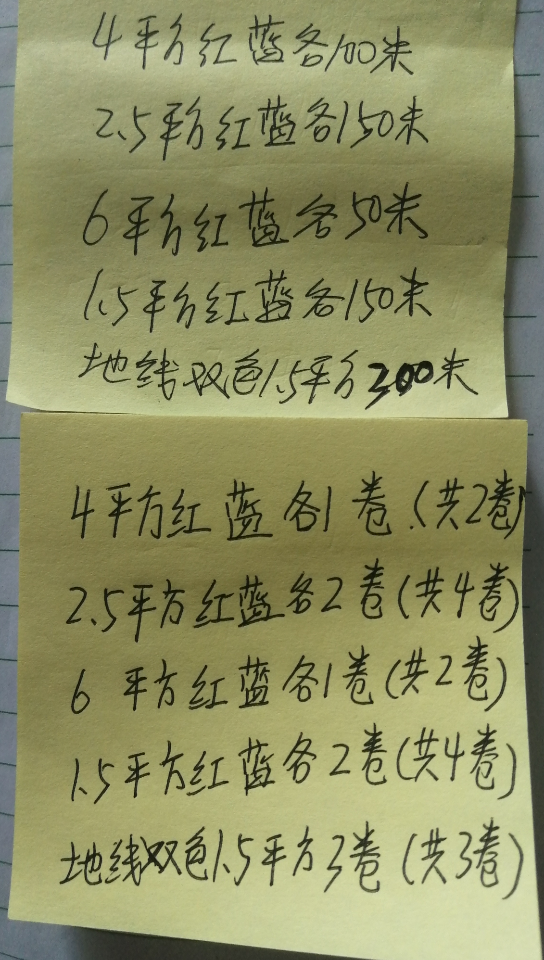 4平方红蓝各100米
2.5平方红蓝各150米
6平方红蓝各50米
1.5平方红蓝各150米
地线双色1.5平方300米
4平方红蓝各1卷.(共2卷)
2.5平方红蓝各2卷(共4卷)
6 平方红蓝各1卷(共2卷)
1.5平方红蓝各2卷(共4卷)
地线双色1.5平方3卷(共3卷)